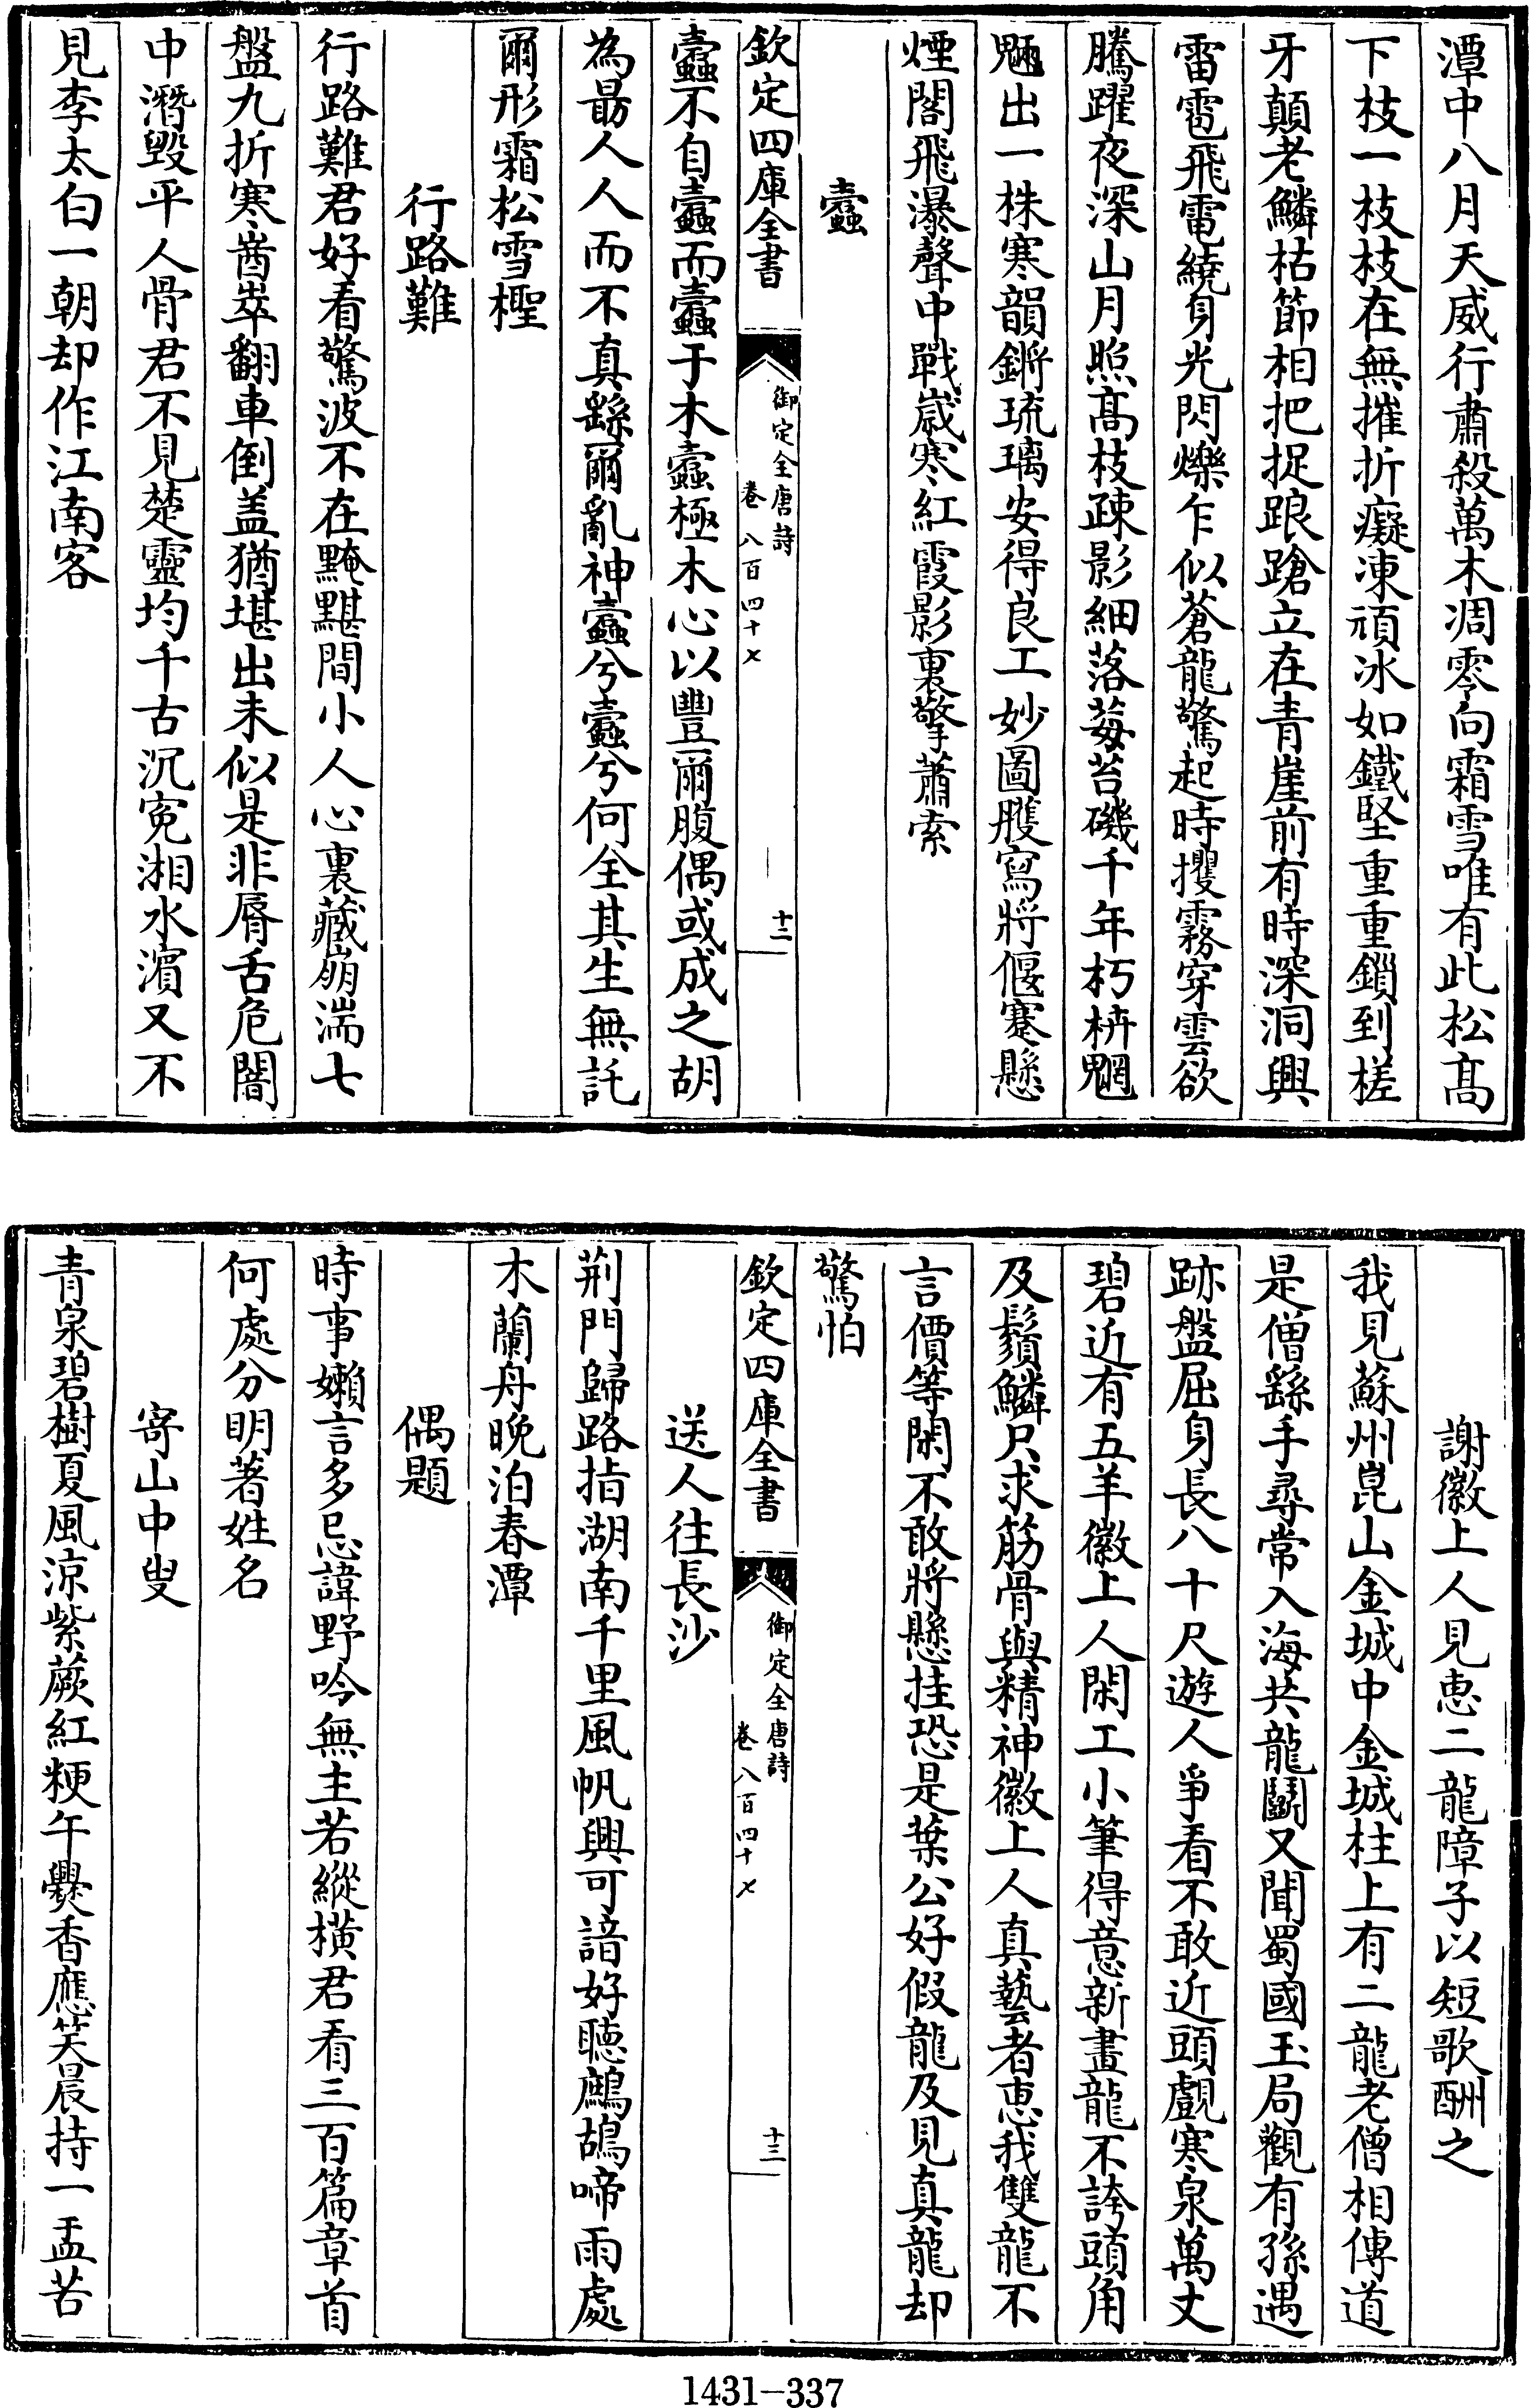 潭中八月天威行肅殺萬木凋零向霜雪唯有此松髙
下枝一枝枝在無摧折癡凍頑冰如鐵堅重重鎖到槎
牙顛老鱗枯節相把捉踉蹌立在青崖前有時深洞興
雷雹飛電繞身光閃爍乍似蒼龍驚起時攫霧穿雲欲
騰躍夜深山月照髙枝疎影細落莓苔磯千年朽枿魍
魎出一株寒韻鏘琉璃安得良工妙圖雘寫將偃蹇懸
煙閣飛瀑聲中戰嵗寒紅霞影裏擎蕭索
蠹
欽定四庫全書
御定全唐詩
卷八百四十七
十二
蠹不自蠹而蠹于木蠹極木心以豐爾腹偶或成之胡
為勗人人而不真繇爾亂神蠹兮蠹兮何全其生無託
爾形霜松雪檉
行路難
行路難君好看驚波不在黤黮間小人心裏藏崩湍七
盤九折寒崷崒翻車倒盖猶堪出未似是非脣舌危闇
中潛毀平人骨君不見楚靈均千古沉寃湘水濵又不
見李太白一朝却作江南客
謝徽上人見惠二龍障子以短歌酬之
我見蘇州崑山金城中金城柱上有二龍老僧相傳道
是僧繇手尋常入海共龍鬭又聞蜀國玉局觀有孫遇
跡盤屈身長八十尺遊人爭看不敢近頭覷寒泉萬丈
碧近有五羊徽上人閑工小筆得意新畫龍不誇頭角
及鬚鱗只求筋骨與精神徽上人真藝者惠我雙龍不
言價等閑不敢將懸挂恐是葉公好假龍及見真龍却
驚怕
欽定四庫全書
御定全唐詩
卷八百四十七
十三
送人往長沙
荆門歸路指湖南千里風帆興可諳好聴鷓鴣啼雨處
木蘭舟晚泊春潭
偶題
時事嬾言多忌諱野吟無主若縱橫君看三百篇章首
何處分明著姓名
寄山中叟
青泉碧樹夏風涼紫蕨紅粳午爨香應笑晨持一盂苦
1431-337